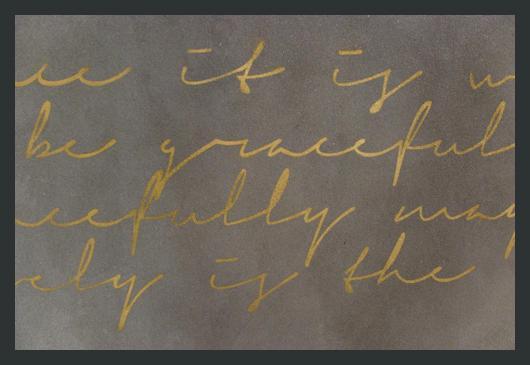 it is
be graceful
cefully may
ely is the